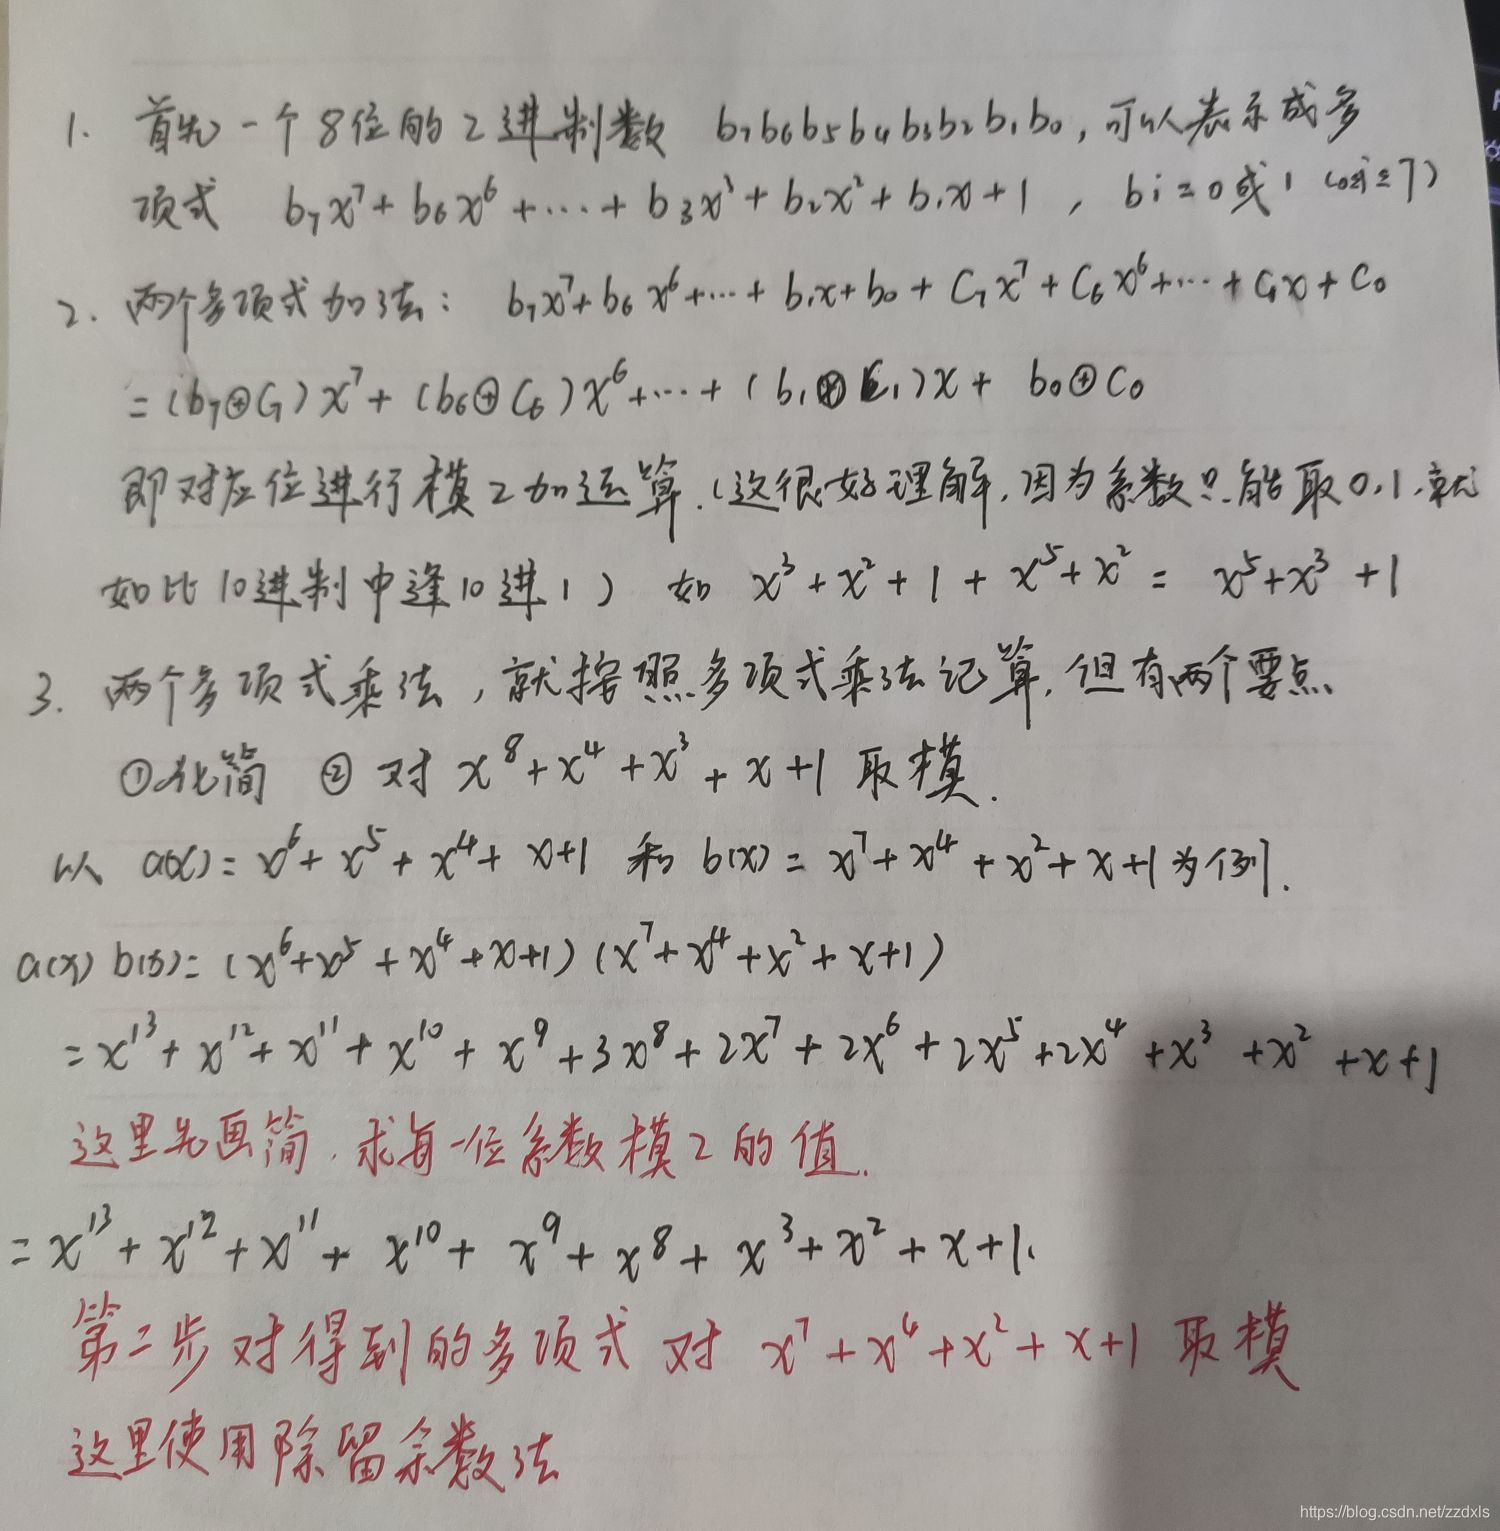 1. 首先一个8位的2进制数 b₇b₆b₅b₄b₃b₂b₁b₀,可以表示成多
项式 b₇x⁷+b₆x⁶+……+b₃x³+b₂x²+b₁x+1 , bi=0或1 (0≤i≤7)
2. 两个多项式加法: b₇x⁷+b₆x⁶+…+b₁x+b₀+C₇x⁷+C₆x⁶+…+C₁x+C₀
=(b₇⊕C₇)x⁷+(b₆⊕C₆)x⁶+…+(b₁⊕C₁)x+ b₀⊕C₀
即对应位进行模2加运算.(这很好理解,因为系数只能取0,1,就
如比10进制中逢10进1) 如 x³+x²+1+x⁵+x²= x⁵+x³+1
3. 两个多项式乘法,就按照多项式乘法记算,但有两个要点
①化简 ②对 x⁸+x⁴+x³+x+1 取模.
以 a(x)=x⁶+x⁵+x⁴+x+1 和 b(x)=x⁷+x⁴+x²+x+1为例.
a(x)b(x)=(x⁶+x⁵+x⁴+x+1)(x⁷+x⁴+x²+x+1)
=x¹³+x¹²+x¹¹+x¹⁰+x⁹+3x⁸+2x⁷+2x⁶+2x⁵+2x⁴+x³+x²+x+1
这里先画简,求每一位系数模2的值.
=x¹³+x¹²+x¹¹+x¹⁰+x⁹+x⁸+x³+x²+x+1.
第二步对得到的多项式对 x⁷+x⁴+x²+x+1 取模
这里使用除留余数法
https://blog.csdn.net/zzdxls